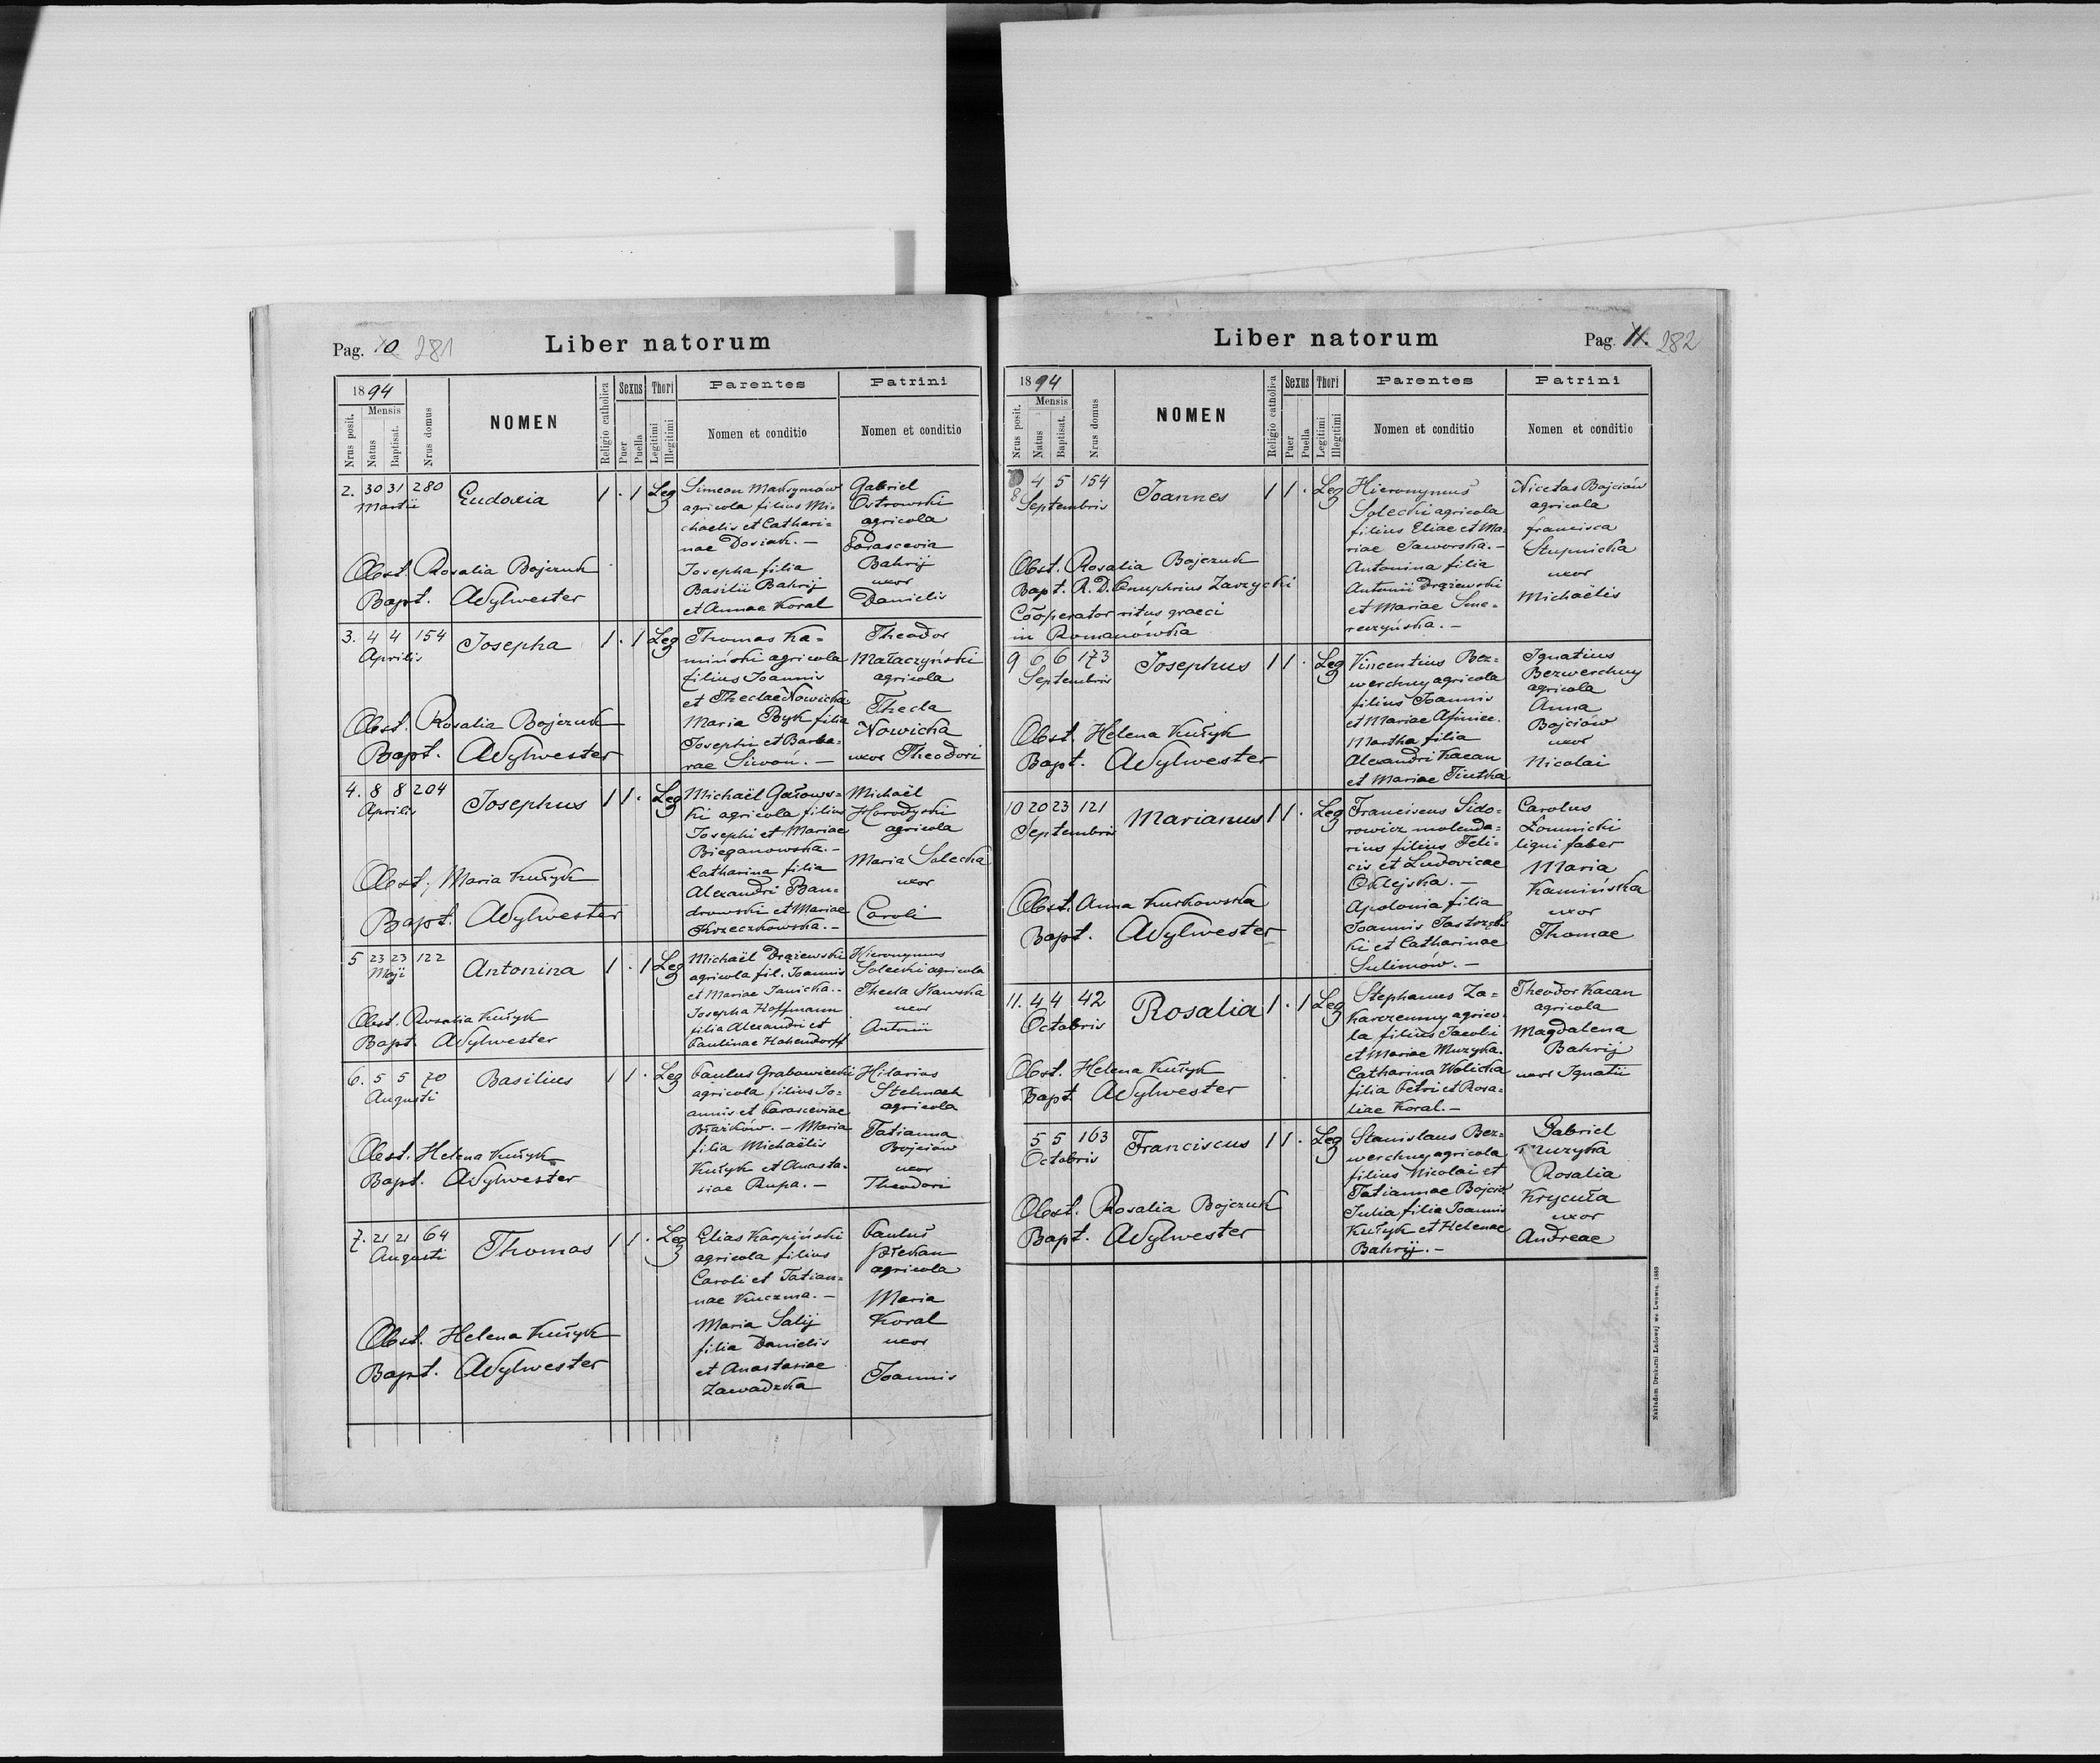 Pag. 10 281
Liber natorum
1894
Mensis
Nrus posit.
Natus
Baptisat.
Nrus domus
NOMEN
Religio catholica
Sexus
Puer
Puella
Thori
Legitimi
Illegitimi
Parentes
Nomen et conditio
Patrini
Nomen et conditio
2. 30 31 280
Martii
Eudoxia
1 . 1 Leg
Simeon Maksymów
agricola filius Mi-
chaelis et Cathari-
nae Dosiak. —
Josepha filia
Basilii Bahrij
et Annae Koral
Gabriel
Ostrowski
agricola
Parascevia
Bahrij
uxor
Danielis
Obst. Rosalia Bojczuk
Bapt. ASylwester
3. 4 4 154
Aprilis
Josepha
1 . 1 Leg
Thomas Ka-
miński agricola
filius Joannis
et Theclae Nowicka
Maria Byk filia
Josephi et Barba-
rae Siwoń. —
Theodor
Małaczyński
agricola
Thecla
Nowicka
uxor Theodori
Obst. Rosalia Bojczuk
Bapt. ASylwester
4. 8 8 204
Aprilis
Josephus
1 1 . Leg
Michaël Gałows-
ki agricola filius
Josephi et Mariae
Bieganowska. —
Catharina filia
Alexandri Ban-
drowski et Mariae
Krzeczkowska. —
Michaël
Horodyski
agricola
Maria Solecka
uxor
Caroli
Obst. Maria Kułyk
Bapt. ASylwester
5 23 23 122
Maji
Antonina
1 . 1 Leg
Michaël Drążewski
agricola fil. Joannis
et Mariae Janicka. -
Josepha Hoffmann
filia Alexandri et
Paulinae Hohendorff
Hieronymus
Solecki agricola
Thecla Sławska
uxor
Antonii
Obst. Rosalia Kułyk
Bapt. ASylwester
6. 5 5 70
Augusti
Basilius
1 1 . Leg
Paulus Grabowiecki
agricola filius Jo-
annis et Parasceviae
Błażków. — Maria
filia Michaëlis
Kułyk et Anasta-
siae Rupa. —
Hilarius
Stelmach
agricola
Tatianna
Bojciów
uxor
Theodori
Obst. Helena Kułyk
Bapt. ASylwester
7. 21 21 64
Augusti
Thomas
1 1 . Leg
Elias Karpiński
agricola filius
Caroli et Tatian-
nae Kuczma. —
Maria Salij
filia Danielis
et Anastasiae
Zawadzka
Paulus
agricola
Maria
Koral
uxor
Joannis
Obst. Helena Kułyk
Bapt. ASylwester
Liber natorum
Pag. 11. 282
1894
Mensis
Nrus posit.
Natus
Baptisat.
Nrus domus
NOMEN
Religio catholica
Sexus
Puer
Puella
Thori
Legitimi
Illegitimi
Parentes
Nomen et conditio
Patrini
Nomen et conditio
8 4 5 154
Septembris
Joannes
1 1 . Leg
Hieronymus
Solecki agricola
filius Eliae et Ma-
riae Jaworska. —
Antonina filia
Antonii Drążewski
et Mariae Sme-
reczyńska. —
Nicetas Bojciów
agricola
francisca
Stupnicka
uxor
Michaëlis
Obst. Rosalia Bojczuk
Bapt. R. D. Onuphrius Zarzycki
Cooperator ritus graeci
in Romanówka
9 6 6 173
Septembris
Josephus
1 1 . Leg
Vincentius Bez-
werchny agricola
filius Joannis
et Mariae
Martha filia
Alexandri Kacan
et Mariae
Ignatius
Bezwerchny
agricola
Anna
Bojciów
uxor
Nicolai
Obst. Helena Kułyk
Bapt. ASylwester
10 20 23 121
Septembris
Marianus
1 1 . Leg
Franciscus Sido-
rowicz molenda-
rius filius Feli-
cis et Ludovicae
Oklejska. —
Apolonia filia
Joannis Jastrzęb-
ki et Catharinae
Sulimów. —
Carolus
Łomnicki
ligni faber
Maria
Kamińska
uxor
Thomae
Obst. Anna Kurkowska
Bapt. ASylwester
11. 4 4 42
Octobris
Rosalia
1 . 1 Leg
Stephanus Za-
karczemny agrico-
la filius Jacobi
et Mariae Muzyka.
Catharina Wolicka
filia Petri et Rosa-
liae Koral. —
Theodor Kacan
agricola
Magdalena
Bahrij
uxor Ignatii
Obst. Helena Kułyk
Bapt. ASylwester
5 5 163
Octobris
Franciscus
1 1 . Leg
Stanislaus Bez-
werchny agricola
filius Nicolai et
Tatiannae Bojciów
Julia filia Joannis
Kułyk et Helenae
Bahrij. —
Gabriel
Muzyka
Rosalia
Krycuła
uxor
Andreae
Obst. Rosalia Bojczuk
Bapt. ASylwester
Nakładem Drukarni Ludowej we Lwowie. 1889